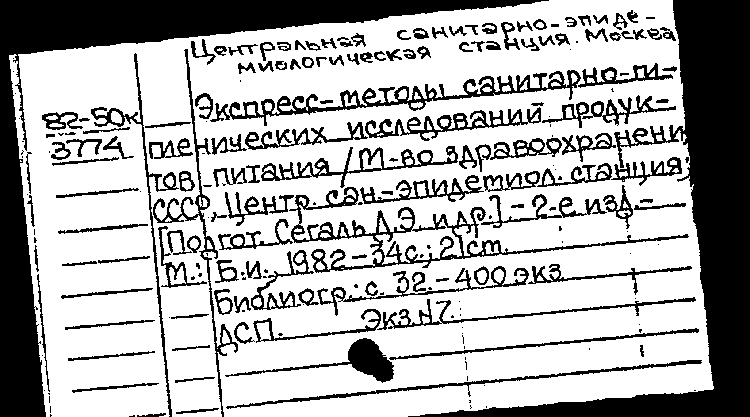 Центральная санитарно-эпиде-
миологическая станция. Москва
82-50к
3774
Экспресс-методы санитарно-ги-
гиенических исследований продук-
тов питания / М-во здравоохранени
СССР, Центр. сан.-эпидемиол. станция;
[Подгот. Сегаль Д.Э. и др.]. - 2-е изд. -
М.: Б.и., 1982 - 34с.; 21см.
Библиогр.: с. 32. - 400 экз
ДСП. Экз.N7.